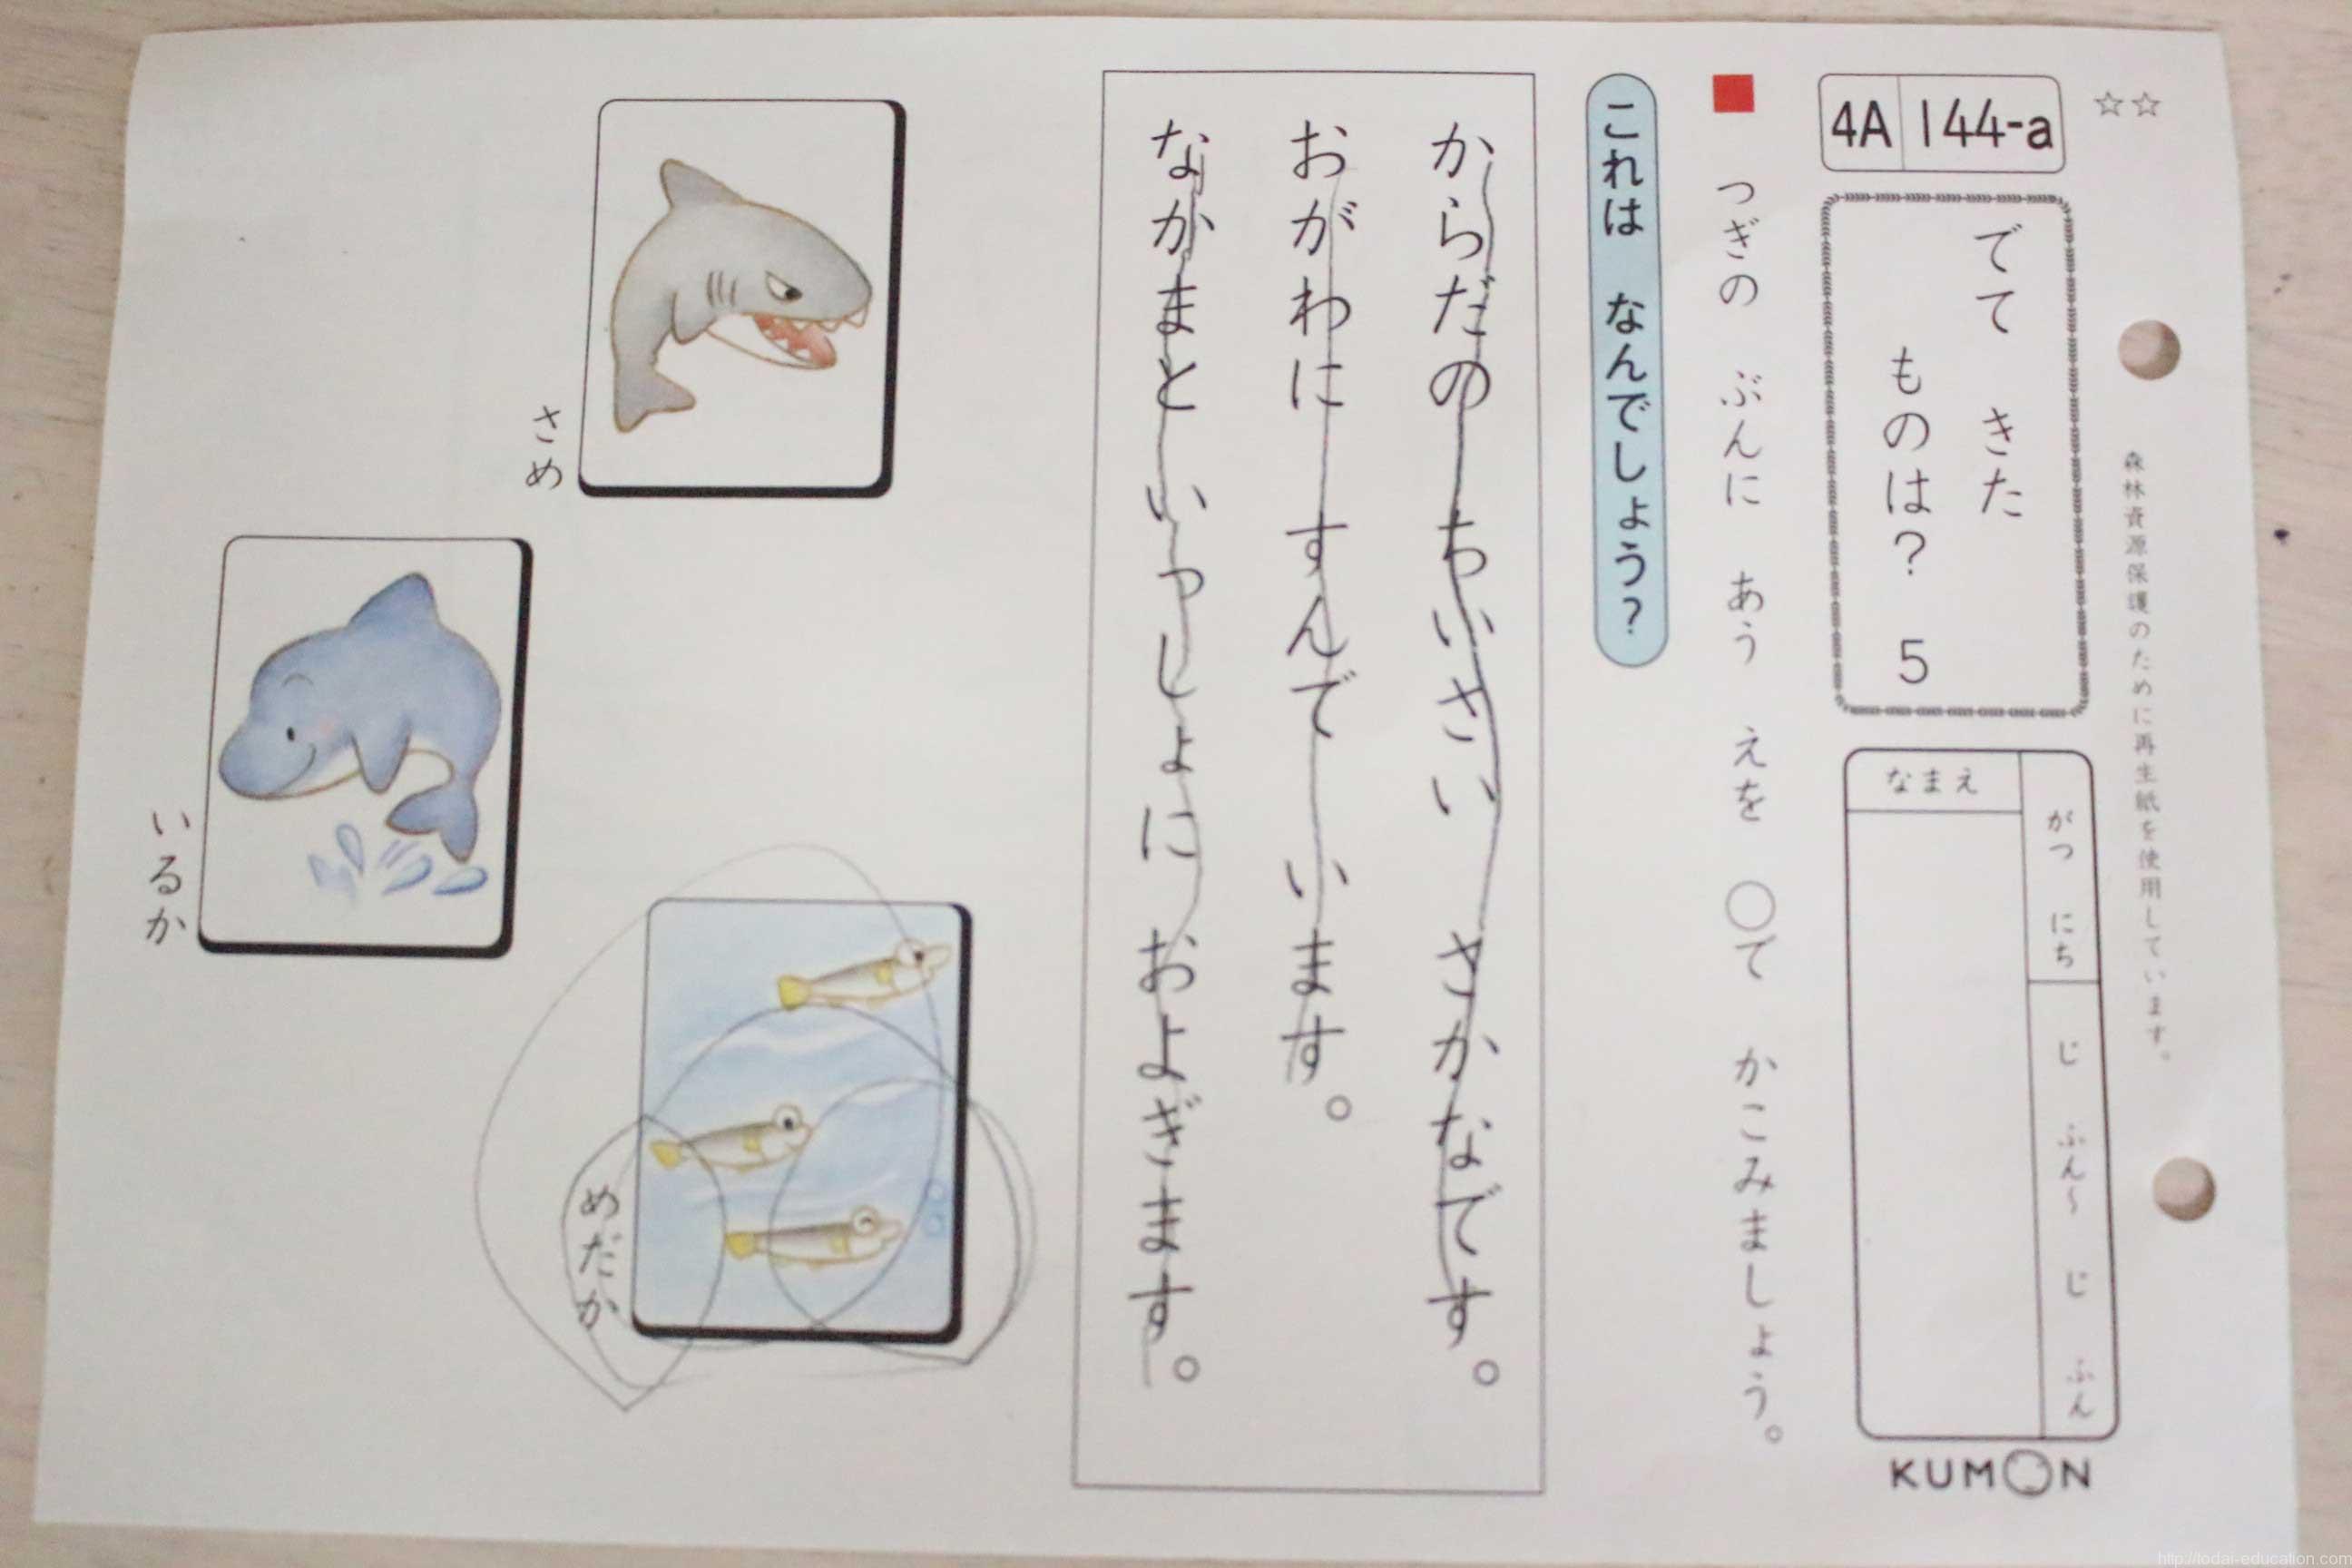 森林資源保護のために再生紙を使用しています。
☆☆
4A 144-a
でて きた
ものは? 5
がつ にち
じ ふん〜 じ ふん
なまえ
KUMON
■ つぎの ぶんに あう えを ○で かこみましょう。
これは なんでしょう?
からだの ちいさい さかなです。
おがわに すんで います。
なかまと いっしょに およぎます。
さめ
いるか
めだか
http://todai-education.com